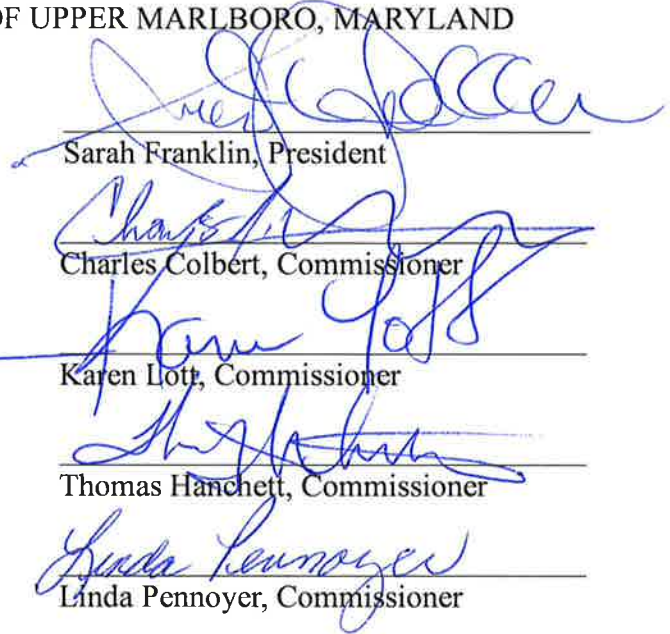 OF UPPER MARLBORO, MARYLAND
Sarah Franklin, President
Charles Colbert, Commissioner
Karen Lott
Karen Lott, Commissioner
Thomas Hanchett, Commissioner
Linda Pennoyer
Linda Pennoyer, Commissioner